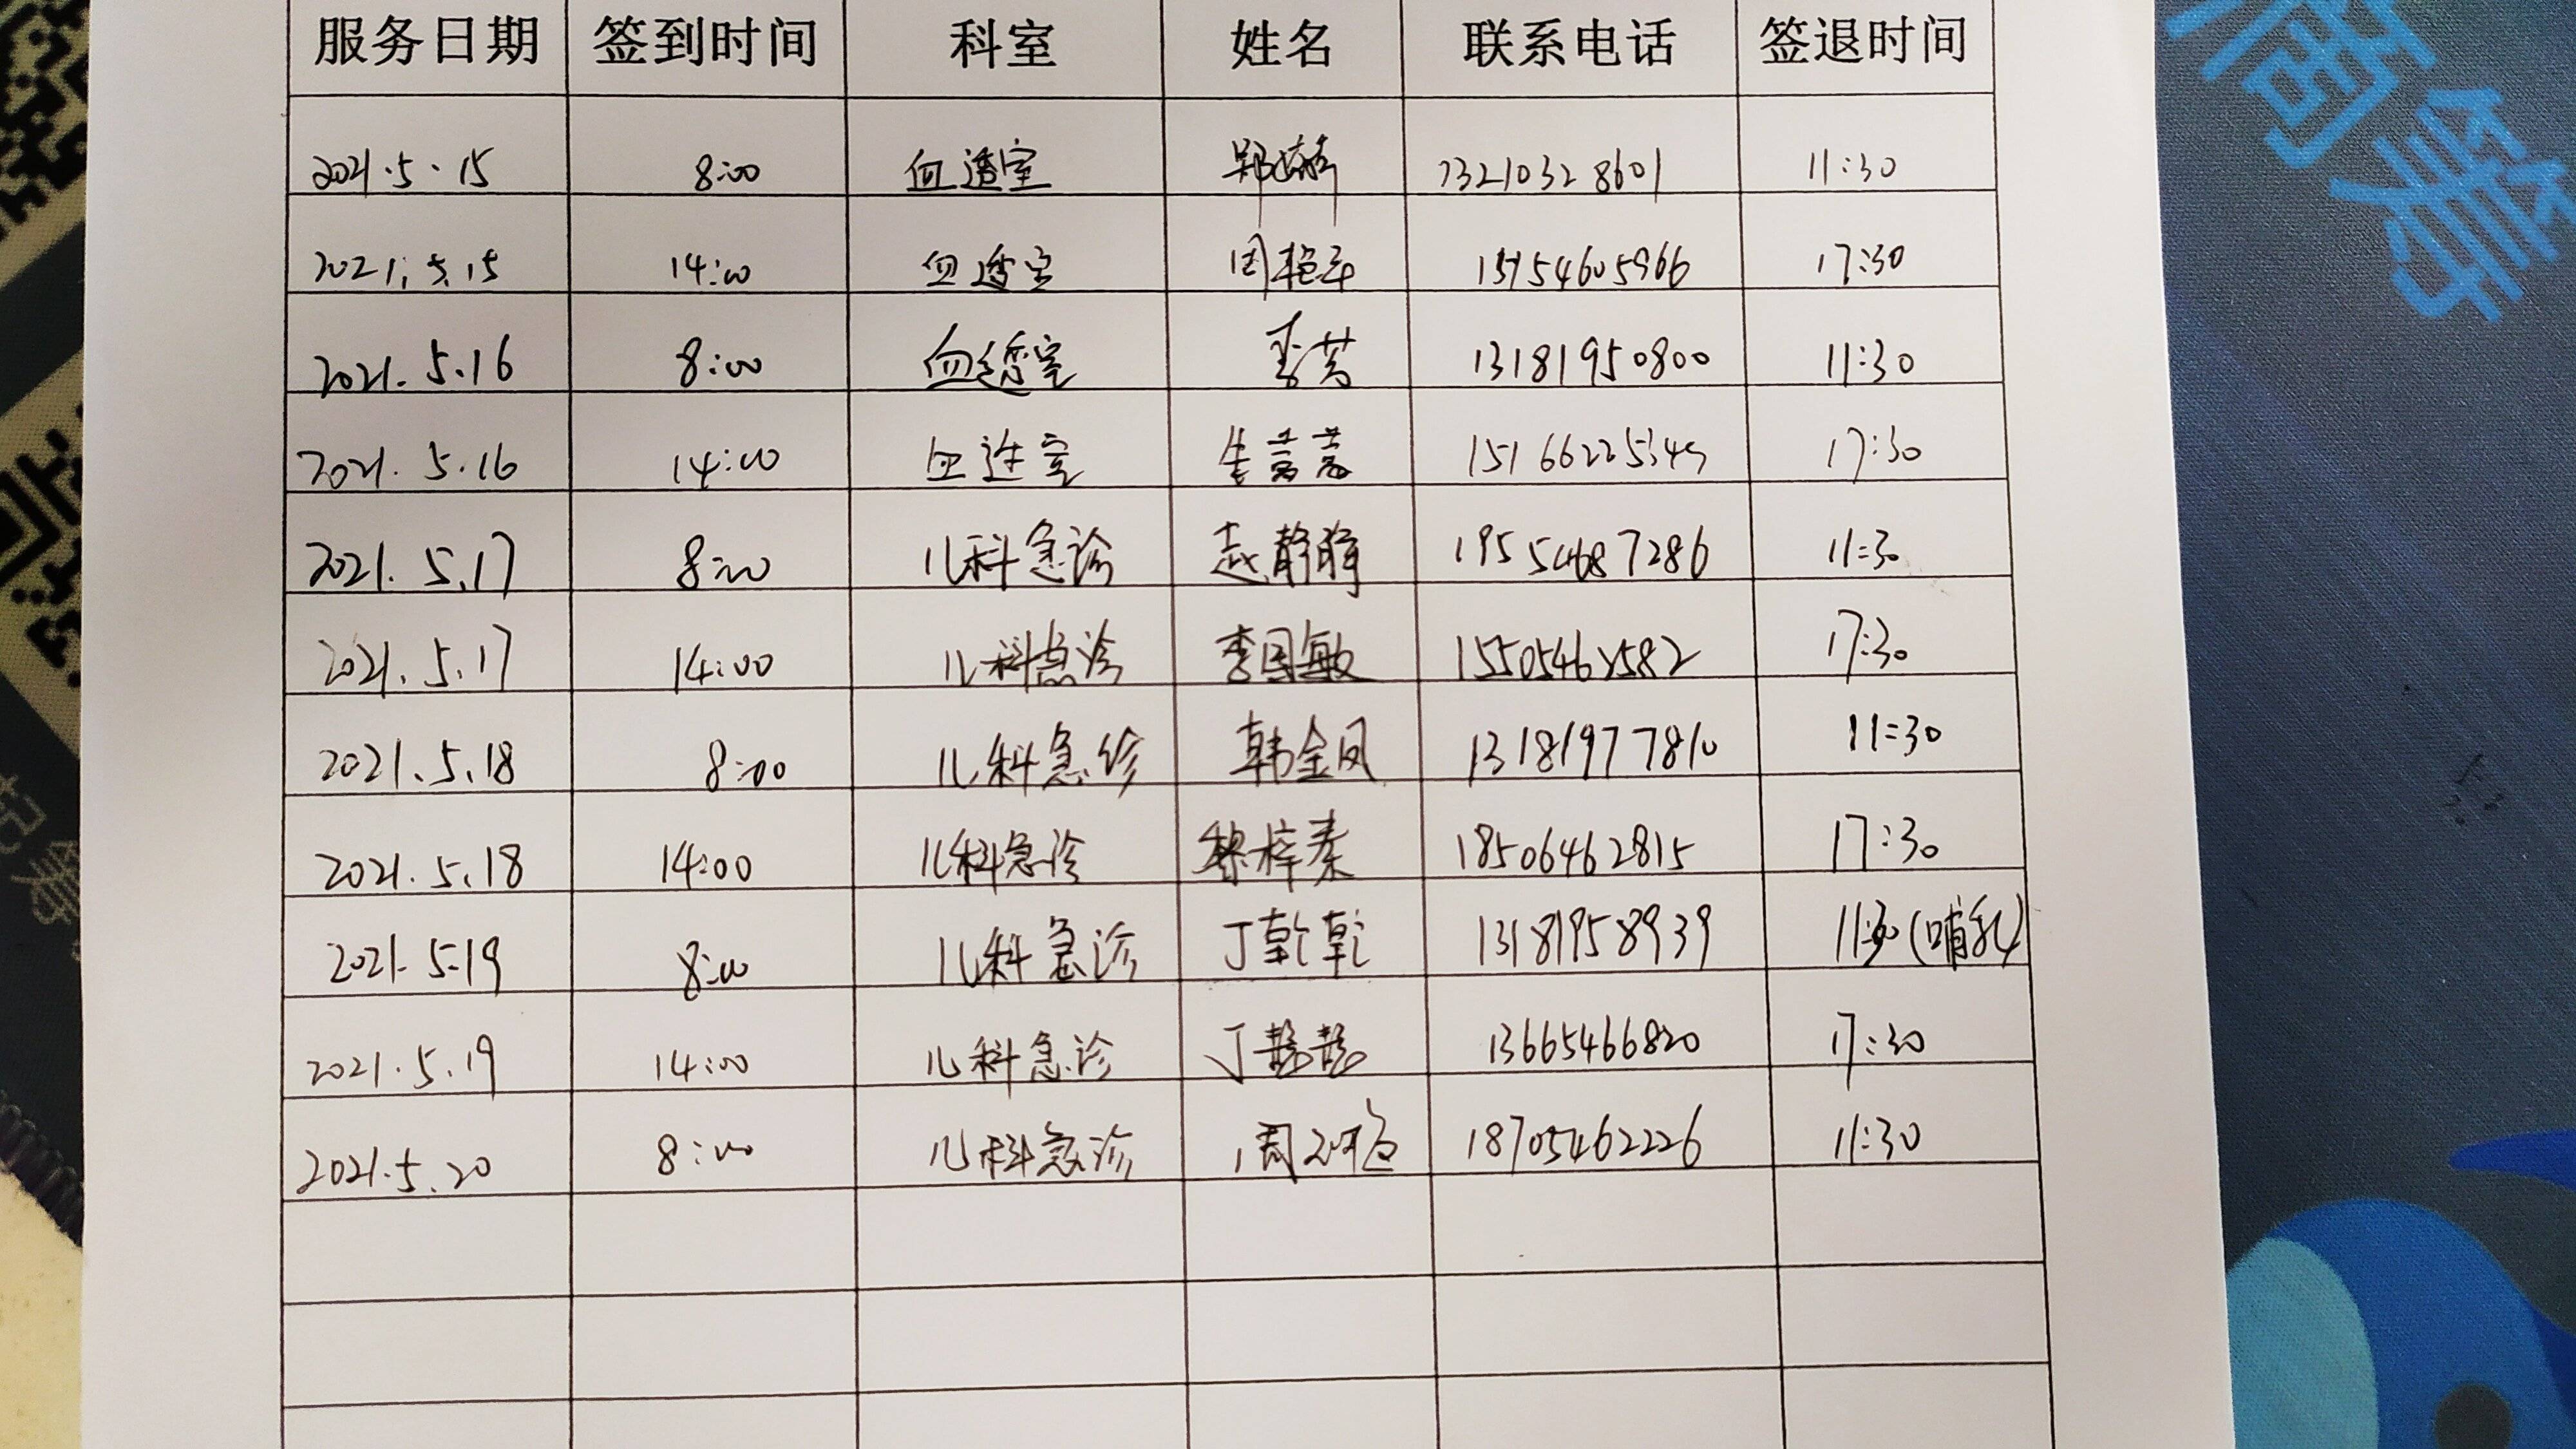 服务日期 签到时间 科室 姓名 联系电话 签退时间
2021.5.15 8:00 血透室 11:30
2021.5.15 14:00 血透室 17:30
2021.5.16 8:00 血透室 李芸 13181950800 11:30
2021.5.16 14:00 血透室 17:30
2021.5.17 8:00 儿科急诊 19554687286 11:30
2021.5.17 14:00 儿科急诊 李国敏 17:30
2021.5.18 8:00 儿科急诊 韩金凤 13181977810 11:30
2021.5.18 14:00 儿科急诊 18506462815 17:30
2021.5.19 8:00 儿科急诊 丁乾乾 13181958939 11:30(哺乳)
2021.5.19 14:00 儿科急诊 丁慧慧 13665466820 17:30
2021.5.20 8:00 儿科急诊 18705462226 11:30